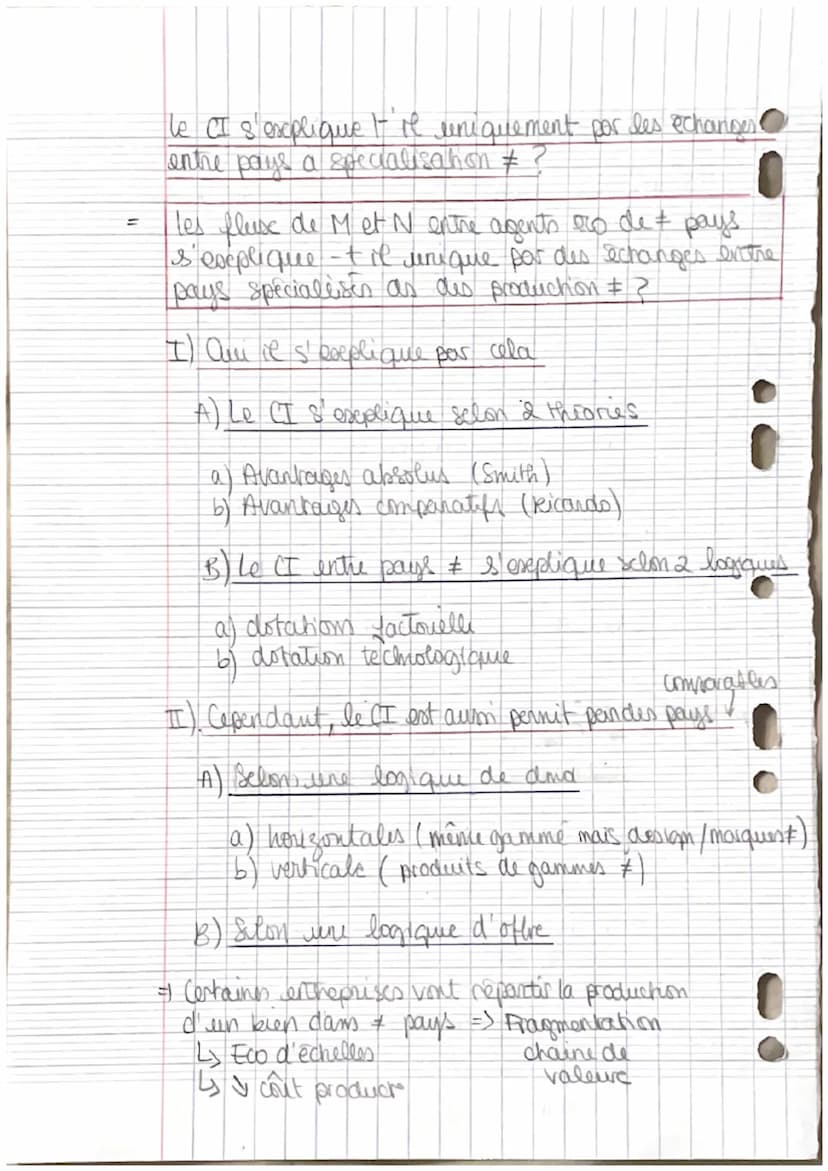 Le CI s'explique t-il uniquement par des echanges
entre pays a specialisation ≠ ?
= les fluxe de M et N entre agents eco de ≠ pays
s'explique -t il unique par des échanges entre
pays spécialisés ds des production ≠ ?
I) Oui il s'explique par cela
A) Le CI s'explique selon 2 théories
a) Avantages absolus (Smith)
b) Avantages comparatifs (Ricardo)
B) Le CI entre pays ≠ s'explique selon 2 logiques
a) dotations factorielle
b) dotation technologique
comparables
II). Cependant, le CI est aussi permit par des pays ↓
A) Selon une logique de dmd
a) horizontales (même gamme mais design/marques≠)
b) verticale (produits de gammes ≠)
B) Selon une logique d'offre
=> Certains entreprises vont répartir la production
d'un bien dans ≠ pays => Fragmentation
↳ Eco d'échelles chaine de
↳ ↘ coût product° valeure